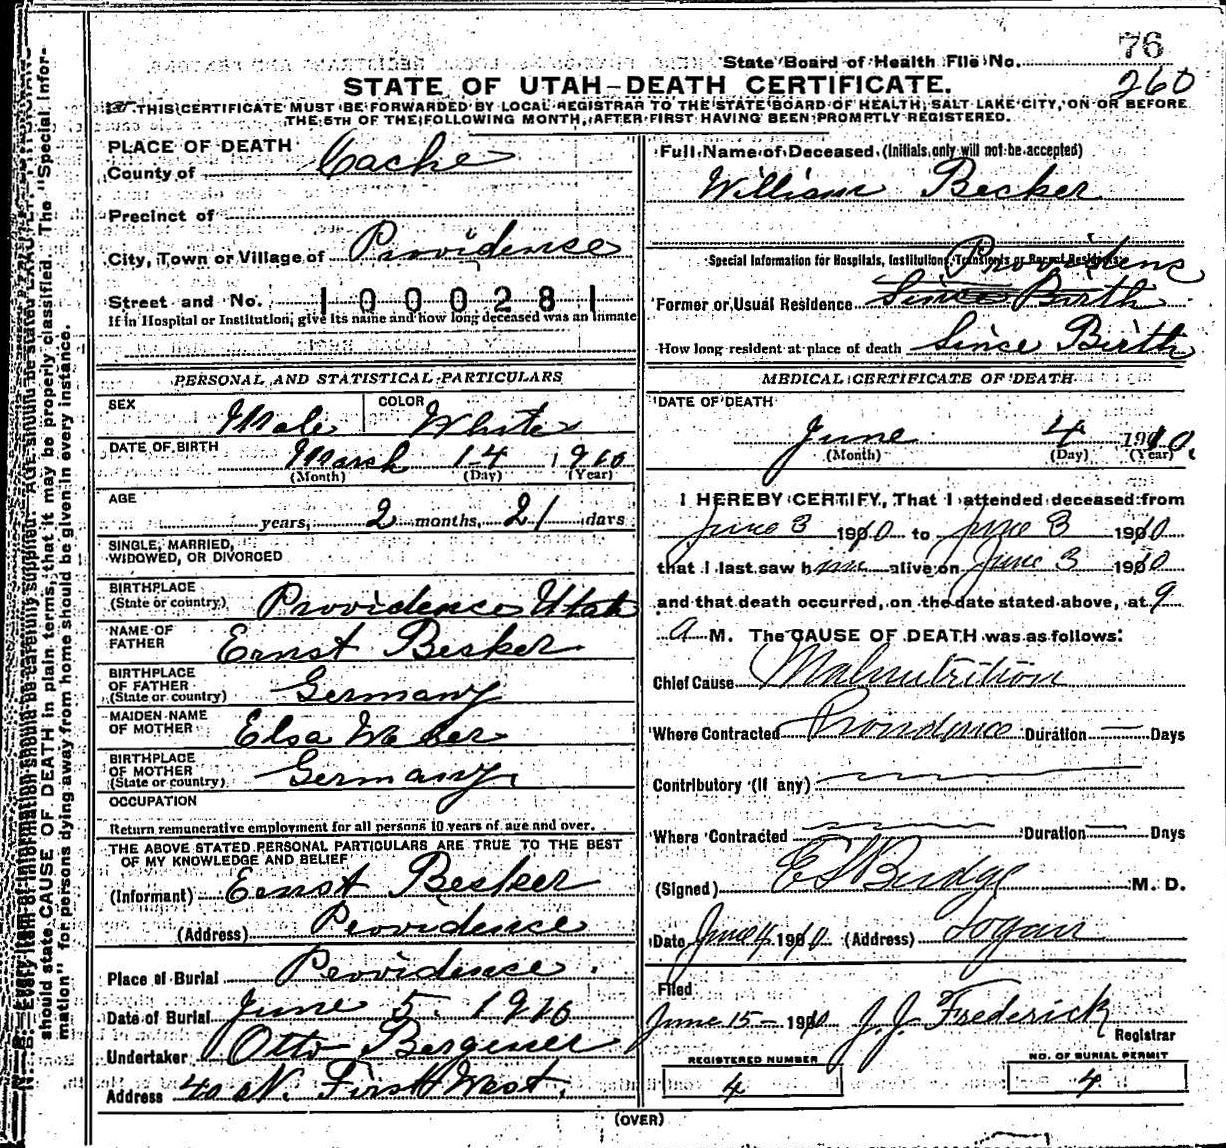 76
State Board of Health File No.
260
STATE OF UTAH—DEATH CERTIFICATE.
THIS CERTIFICATE MUST BE FORWARDED BY LOCAL REGISTRAR TO THE STATE BOARD OF HEALTH, SALT LAKE CITY, ON OR BEFORE
THE 5TH OF THE FOLLOWING MONTH, AFTER FIRST HAVING BEEN PROMPTLY REGISTERED.
PLACE OF DEATH
County of Cache
Precinct of
City, Town or Village of Providence
Street and No. 1000281
If in Hospital or Institution, give its name and how long deceased was an inmate
PERSONAL AND STATISTICAL PARTICULARS
SEX Male COLOR White
DATE OF BIRTH March 14 1910
(Month) (Day) (Year)
AGE
years, 2 months, 21 days
SINGLE, MARRIED,
WIDOWED, OR DIVORCED
BIRTHPLACE
(State or country) Providence Utah
NAME OF
FATHER Ernst Becker
BIRTHPLACE
OF FATHER
(State or country) Germany
MAIDEN NAME
OF MOTHER Elsa Weber
BIRTHPLACE
OF MOTHER
(State or country) Germany
OCCUPATION
Return remunerative employment for all persons 10 years of age and over.
THE ABOVE STATED PERSONAL PARTICULARS ARE TRUE TO THE BEST
OF MY KNOWLEDGE AND BELIEF
(Informant) Ernst Becker
(Address) Providence
Place of Burial Providence.
Date of Burial June 5. 1910
Undertaker Otto Bergener
Address 40 N. First West.
Full Name of Deceased (Initials only will not be accepted)
William Becker
Special Information for Hospitals, Institutions, Transients or Recent Residents:
Providenc
Former or Usual Residence Since Birth
How long resident at place of death Since Birth
MEDICAL CERTIFICATE OF DEATH
DATE OF DEATH
June 4 1910.
(Month) (Day) (Year)
I HEREBY CERTIFY, That I attended deceased from
June 3 1910 to June 3 1910
that I last saw him alive on June 3 1910
and that death occurred, on the date stated above, at 9
A M. The CAUSE OF DEATH was as follows:
Chief Cause Malnutrition
Where Contracted Providence Duration — Days
Contributory (If any)
Where Contracted Duration — Days
(Signed) Budge M. D.
Date June 4 1910 (Address) Logan
Filed
June 15 - 1910 J. J. Frederick
Registrar
REGISTERED NUMBER
4
NO. OF BURIAL PERMIT
4
(OVER)
should state CAUSE OF DEATH in plain terms, that it may be properly classified. The "Special Infor-
mation" for persons dying away from home should be given in every instance.